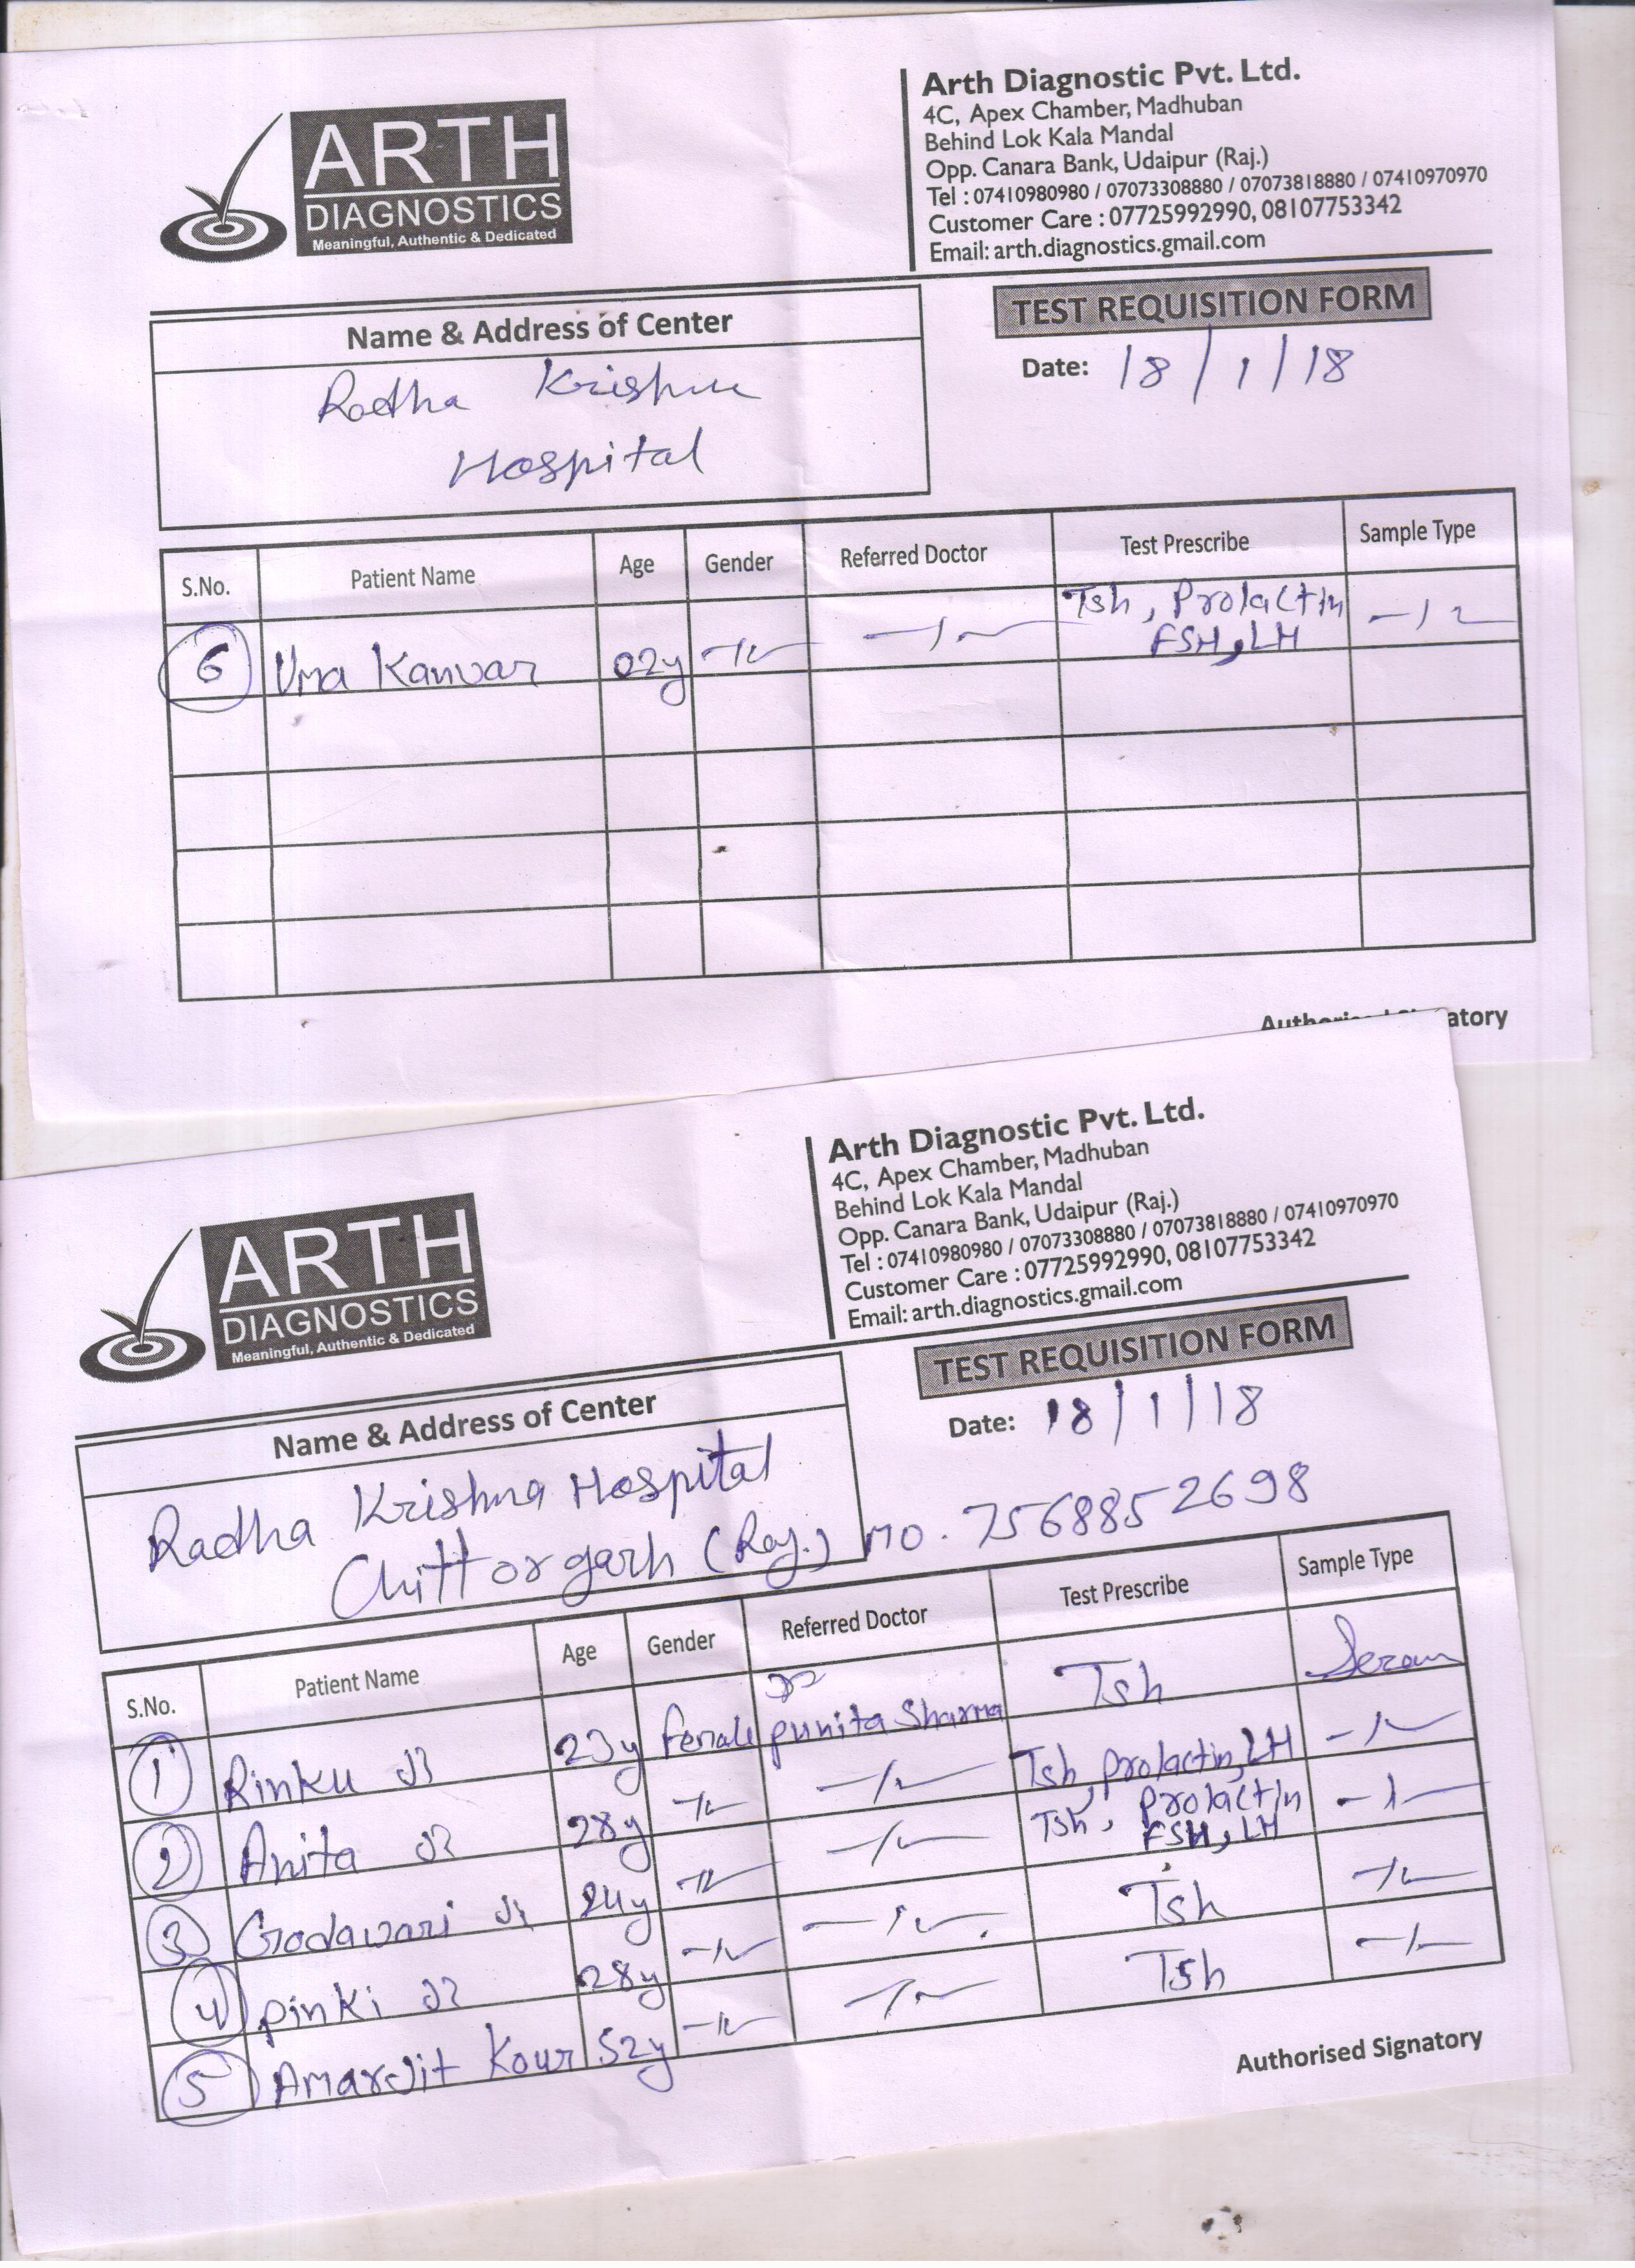 ARTH
DIAGNOSTICS
Meaningful, Authentic & Dedicated
Arth Diagnostic Pvt. Ltd.
4C, Apex Chamber, Madhuban
Behind Lok Kala Mandal
Opp. Canara Bank, Udaipur (Raj.)
Tel : 07410980980 / 07073308880 / 07073818880 / 07410970970
Customer Care : 07725992990, 08107753342
Email: arth.diagnostics.gmail.com
TEST REQUISITION FORM
Name & Address of Center
Date: 18/1/18
Radha Krishna
Hospital
S.No. Patient Name Age Gender Referred Doctor Test Prescribe Sample Type
6 Uma Kanwar 02y Tsh, Prolactin
FSH, LH
Authorised Signatory
ARTH
DIAGNOSTICS
Meaningful, Authentic & Dedicated
Arth Diagnostic Pvt. Ltd.
4C, Apex Chamber, Madhuban
Behind Lok Kala Mandal
Opp. Canara Bank, Udaipur (Raj.)
Tel : 07410980980 / 07073308880 / 07073818880 / 07410970970
Customer Care : 07725992990, 08107753342
Email: arth.diagnostics.gmail.com
TEST REQUISITION FORM
Name & Address of Center
Date: 18/1/18
Radha Krishna Hospital
Chittorgarh (Raj.) MO. 7568852698
S.No. Patient Name Age Gender Referred Doctor Test Prescribe Sample Type
1 Rinku जी 23y Female punita Sharma Tsh Serum
2 Anita जी 28y Tsh, prolactin, LH
3 Godawari जी 24y Tsh, prolactin
FSH, LH
4 pinki जी 28y Tsh
5 Amarjit Kour 52y Tsh
Authorised Signatory